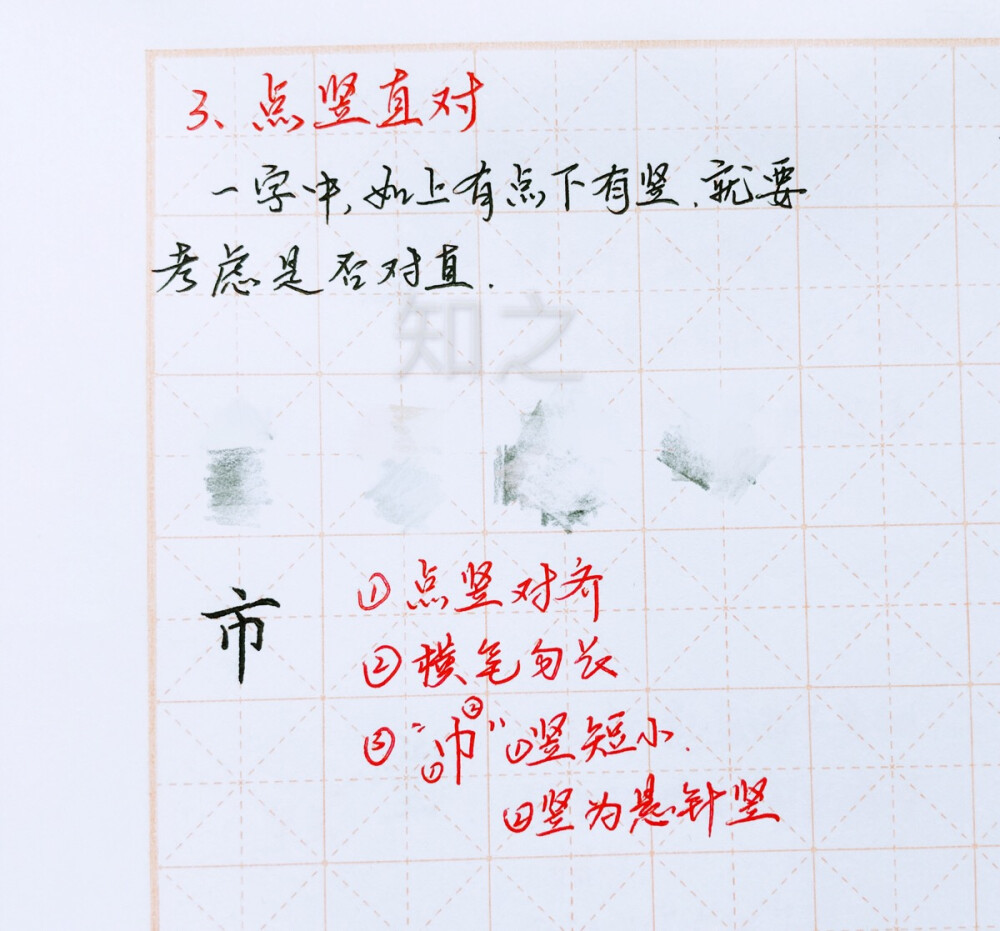 3、点竖直对
一字中,如上有点下有竖,就要
考虑是否对直.
知之
市
①点竖对齐
②横笔匀长
③“巾”①竖短小.
①
②
②竖为悬针竖